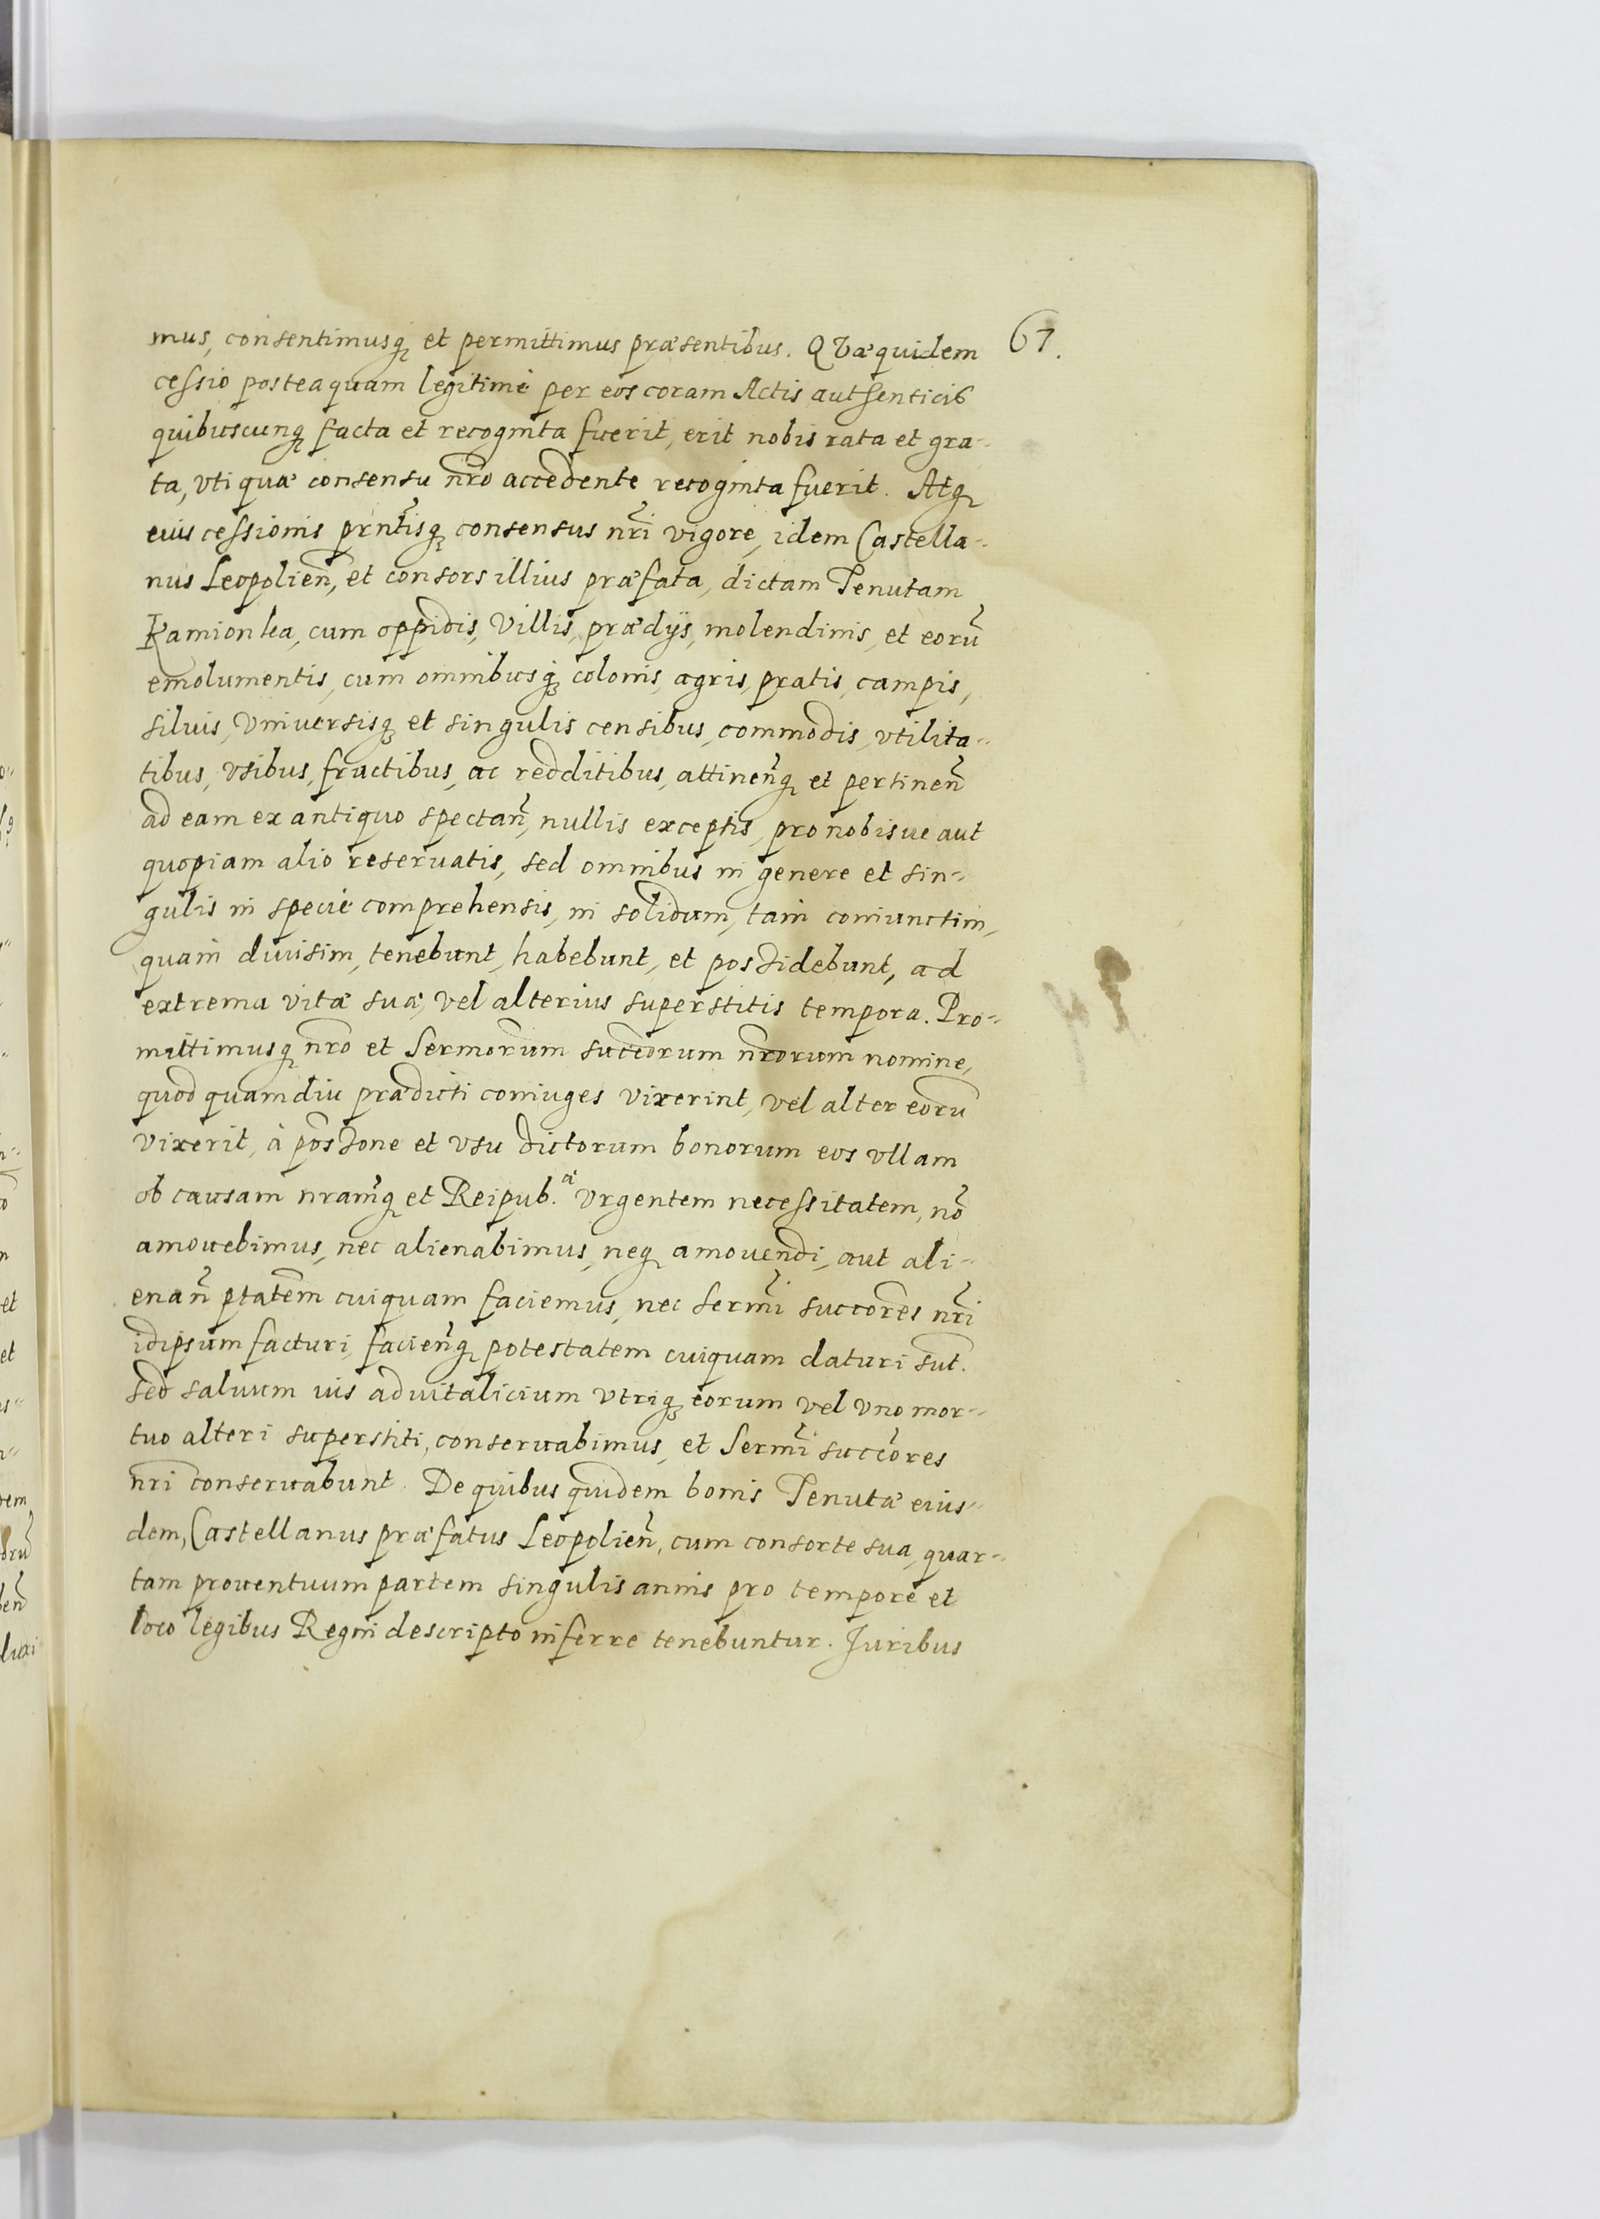 mus, consentimusq̃ et permittimus præsentibus. QVæ quidem 67.
cessio posteaquam legitimè per eos coram Actis authenticis
quibuscunq̃ facta et recognita fuerit, erit nobis rata et gra-
ta, vti quæ consensu nrõ accedente recognita fuerit. Atq̃
eius cessionis prñtisq̃ consensus nrĩ vigore, idem Castella-
nus Leopolieñ, et consors illius præfata, dictam Tenutam
Kamionka, cum oppidis, Villis, prædijs, molendinis, et eorũ
emolumentis, cum omnibusq̃ colonis, agris, pratis, campis,
siluis, Vniuersisq̃ et singulis censibus, commodis, vtilita-
tibus, vsibus, fructibus, ac redditibus, attineñq̃ et pertineñ
ad eam ex antiquo spectañ, nullis exceptis, pro nobisue aut
quopiam alio reseruatis, sed omnibus in genere et sin-
gulis in specie comprehensis, in solidum, tam coniunctim,
quam diuisim, tenebunt, habebunt, et possidebunt, ad
extrema vitæ suæ, vel alterius superstitis tempora. Pro-
mittimusq̃ nrõ et Sermorũm succeorum nrõrum nomine,
quod quamdiu prædicti coniuges vixerint, vel alter eorũ
vixerit, à possõne et vsu dictorum bonorum eos vllam
ob causam nram̃q̃ et Reipub.ᵃᵉ Vrgentem necessitatem, nõ
amouebimus, nec alienabimus, neq̃ amouendi, aut ali-
enañ ptatẽm cuiquam faciemus, nec Sermĩ succorẽs nrĩ
idipsum facturi, facieñq̃ potestatem cuiquam daturi sũt.
Sed saluum ius aduitalicium vtriq̃ eorum vel vno mor-
tuo alteri superstiti, conseruabimus, et Sermĩ succeõres
nrĩ conseruabunt. De quibus quidem bonis Tenutæ eius-
dem, Castellanus præfatus Leopolieñ, cum consorte sua, quar-
tam prouentuum partem singulis annis pro tempore et
loco legibus Regni descripto inferre tenebuntur. Juribus